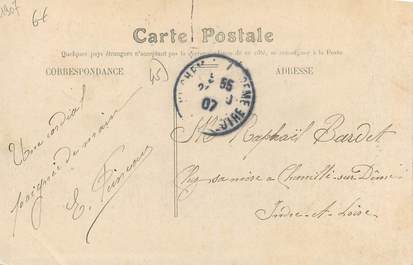 1907
Carte Postale
Quelques pays étrangers n'acceptant pas la correspondance de ce côté, se renseigner à la Poste.
CORRESPONDANCE
ADRESSE
45
55
07
Une cordiale
poignée de main
E.
M. Raphaël Bardet
à Chemillé-sur-Dême
Indre-et-Loire